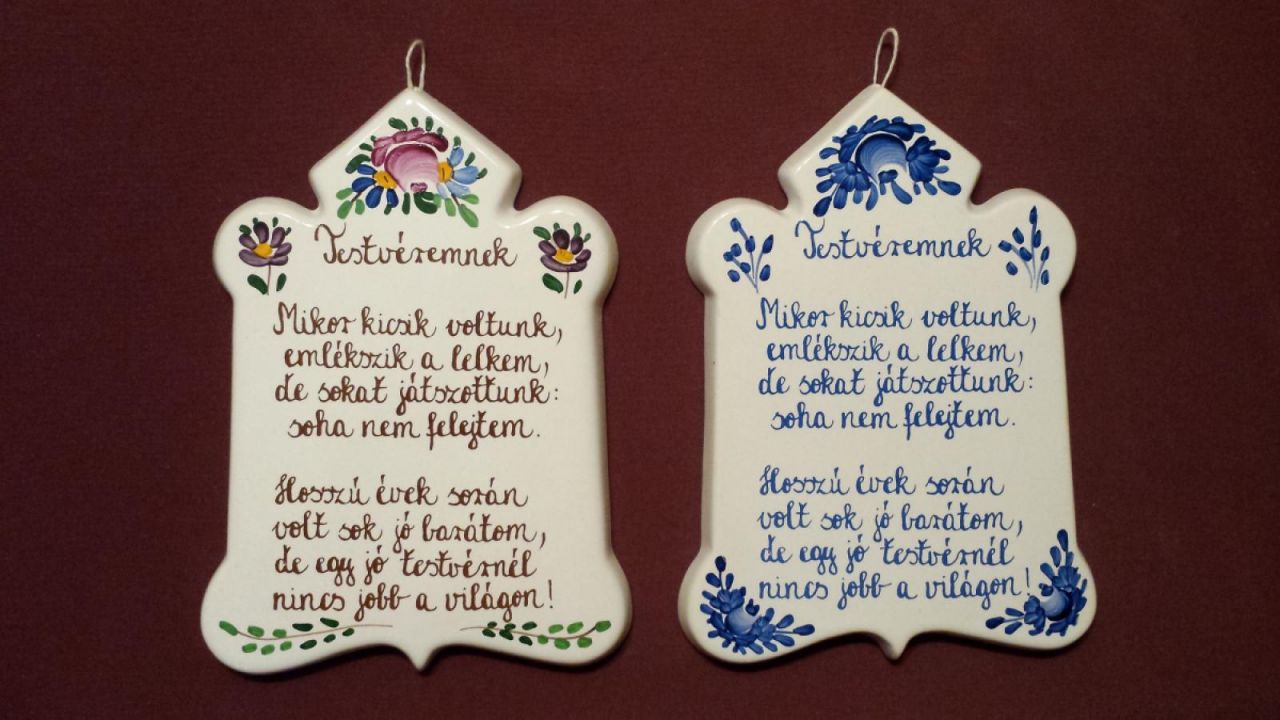 Testvéremnek
Mikor kicsik voltunk,
emlékszik a lelkem,
de sokat játszottunk:
soha nem felejtem.
Hosszú évek során
volt sok jó barátom,
de egy jó testvérnél
nincs jobb a világon!
Testvéremnek
Mikor kicsik voltunk,
emlékszik a lelkem,
de sokat játszottunk:
soha nem felejtem.
Hosszú évek során
volt sok jó barátom,
de egy jó testvérnél
nincs jobb a világon!